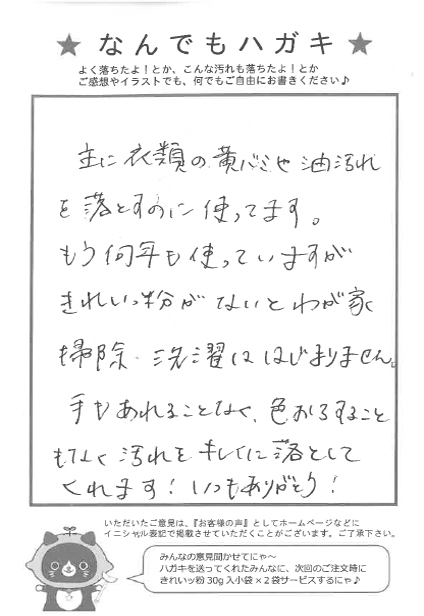 ★ なんでもハガキ ★
よく落ちたよ！とか、こんな汚れも落ちたよ！とか
ご感想やイラストでも、何でもご自由にお書きください♪
主に衣類の黄バミや油汚れ
を落とすのに使ってます。
もう何年も使っていますが
きれいっ粉がないとわが家
掃除・洗濯ははじまりません。
手もあれることなく、色おちすること
もなく汚れをキレイに落として
くれます！いつもありがとう！
いただいたご意見は、『お客様の声』としてホームページなどに
イニシャル表記で掲載させていただくことがございます。ご了承下さい。
みんなの意見聞かせてにゃ～
ハガキを送ってくれたみんなに、次回のご注文時に
きれいッ粉 30g 入小袋×2袋サービスするにゃ♪